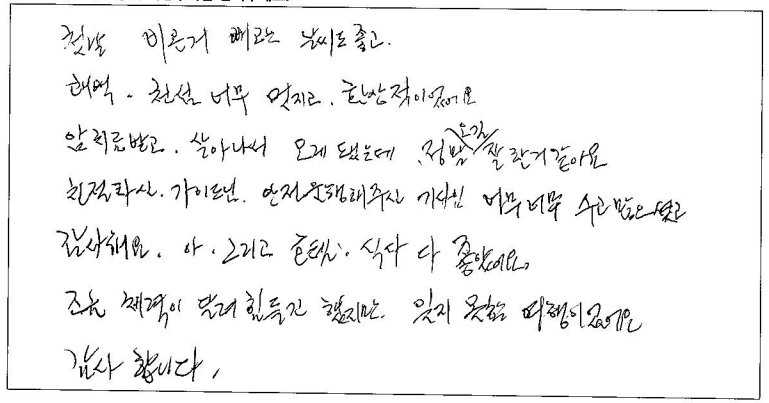 첫날 비온거 빼고는 날씨도 좋고.
태백. 천섬 너무 멋지고. 환상적이었어요
암 치료받고. 살아나서 오게 됐는데. 정말 오길 잘 한거 같아요
친절하신. 가이드님. 안전운행해주신 기사님 너무너무 수고 많으셨고
감사해요. 아. 그리고 호텔. 식사 다 좋았어요.
조금 체력이 딸려 힘들긴 했지만. 잊지 못할 여행이었어요
감사 합니다.